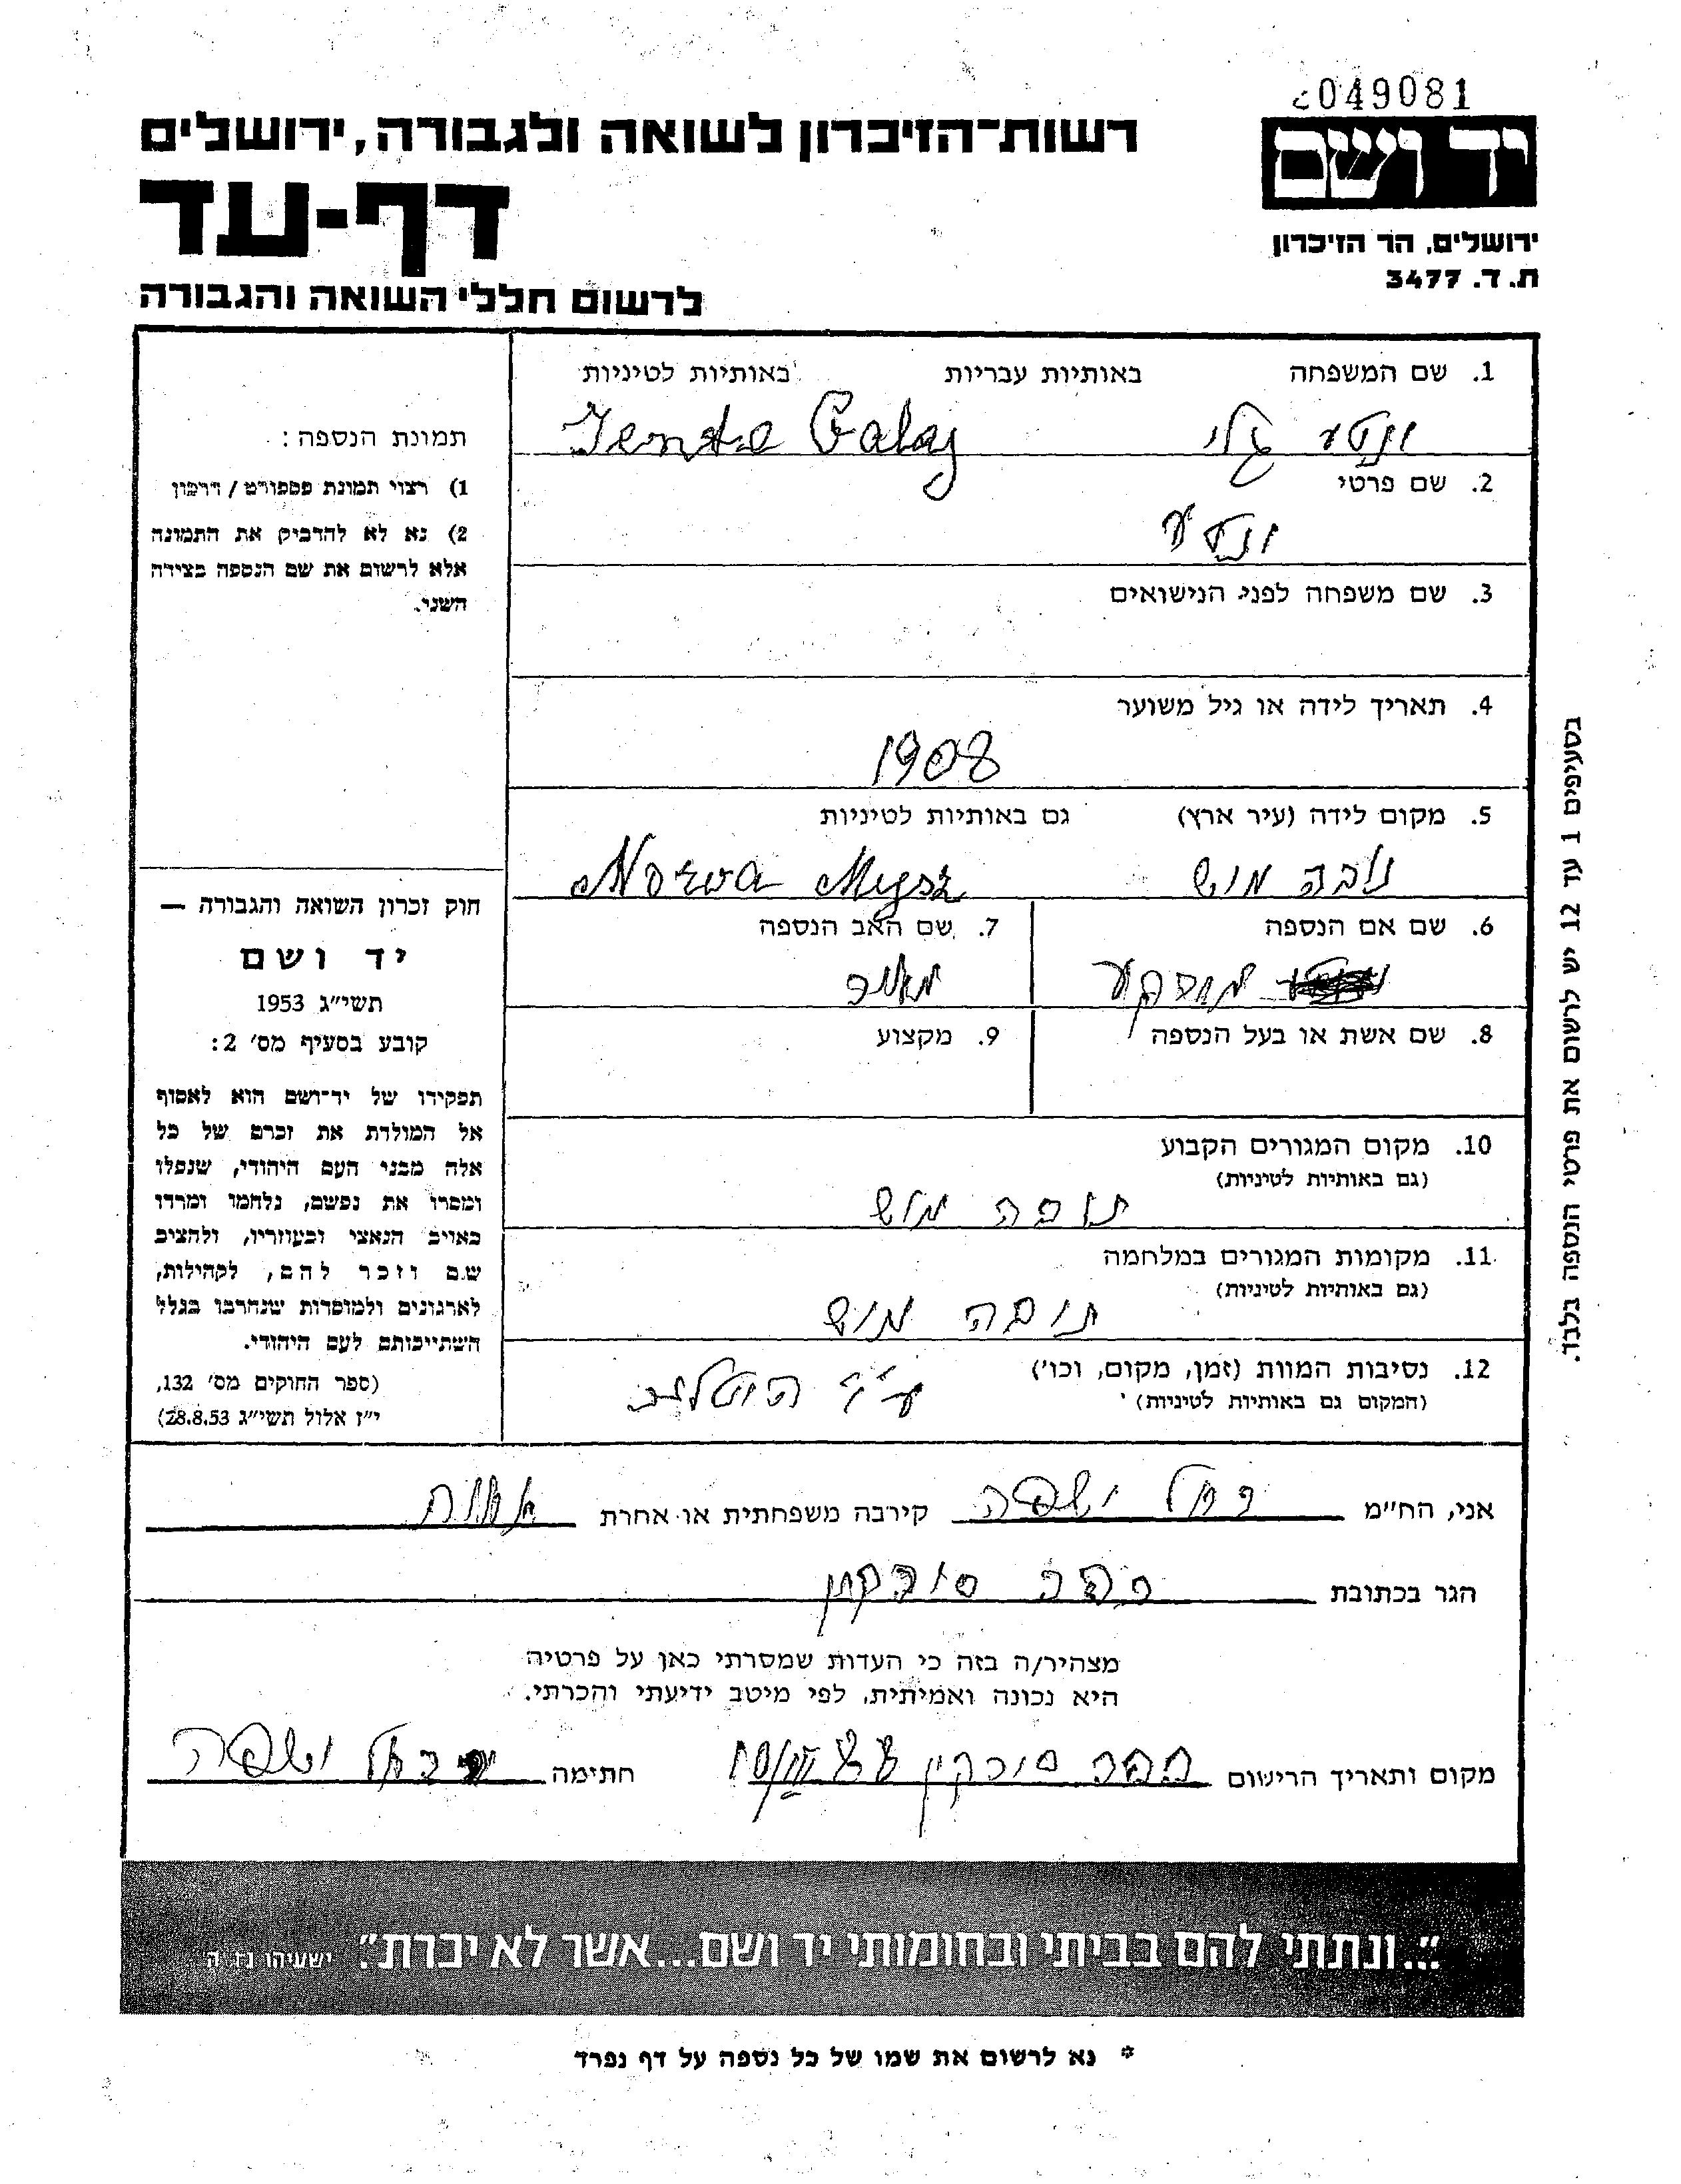 049081
יד ושם
רשות־הזיכרון לשואה ולגבורה, ירושלים
דף-עד
ירושלים, הר הזיכרון
ת.ד. 3477
לרשום חללי השואה והגבורה
1. שם המשפחה באותיות עבריות באותיות לטיניות
גלי Jenta Galaj
2. שם פרטי
3. שם משפחה לפני הנישואים
4. תאריך לידה או גיל משוער
1908
5. מקום לידה (עיר ארץ) גם באותיות לטיניות
נובה מוש Nowa Mysz
6. שם אם הנספה 7. שם האב הנספה
מאיר
8. שם אשת או בעל הנספה 9. מקצוע
10. מקום המגורים הקבוע
(גם באותיות לטיניות)
נובה מוש
11. מקומות המגורים במלחמה
(גם באותיות לטיניות)
נובה מוש
12. נסיבות המוות (זמן, מקום, וכו')
(המקום גם באותיות לטיניות)
ע"י
תמונת הנספה:
1) רצוי תמונת פספורט / דרכון
2) נא לא להדביק את התמונה
אלא לרשום את שם הנספה בצידה
השני.
חוק זכרון השואה והגבורה —
יד ושם
תשי"ג 1953
קובע בסעיף מס' 2:
תפקידו של יד־ושם הוא לאסוף
אל המולדת את זכרם של כל
אלה מבני העם היהודי, שנפלו
ומסרו את נפשם, נלחמו ומרדו
באויב הנאצי ובעוזריו, ולהציב
שם וזכר להם, לקהילות,
לארגונים ולמוסדות שנחרבו בגלל
השתייכותם לעם היהודי.
(ספר החוקים מס' 132,
י"ז אלול תשי"ג 28.8.53)
בסעיפים 1 עד 12 יש לרשום את פרטי הנספה בלבד.
אני, הח"מ רחל קירבה משפחתית או אחרת אחות
הגר בכתובת
מצהיר/ה בזה כי העדות שמסרתי כאן על פרטיה
היא נכונה ואמיתית, לפי מיטב ידיעתי והכרתי.
מקום ותאריך הרישום חתימה רחל
"...ונתתי להם בביתי ובחומותי יד ושם...אשר לא יכרת". ישעיהו נו ה
* נא לרשום את שמו של כל נספה על דף נפרד